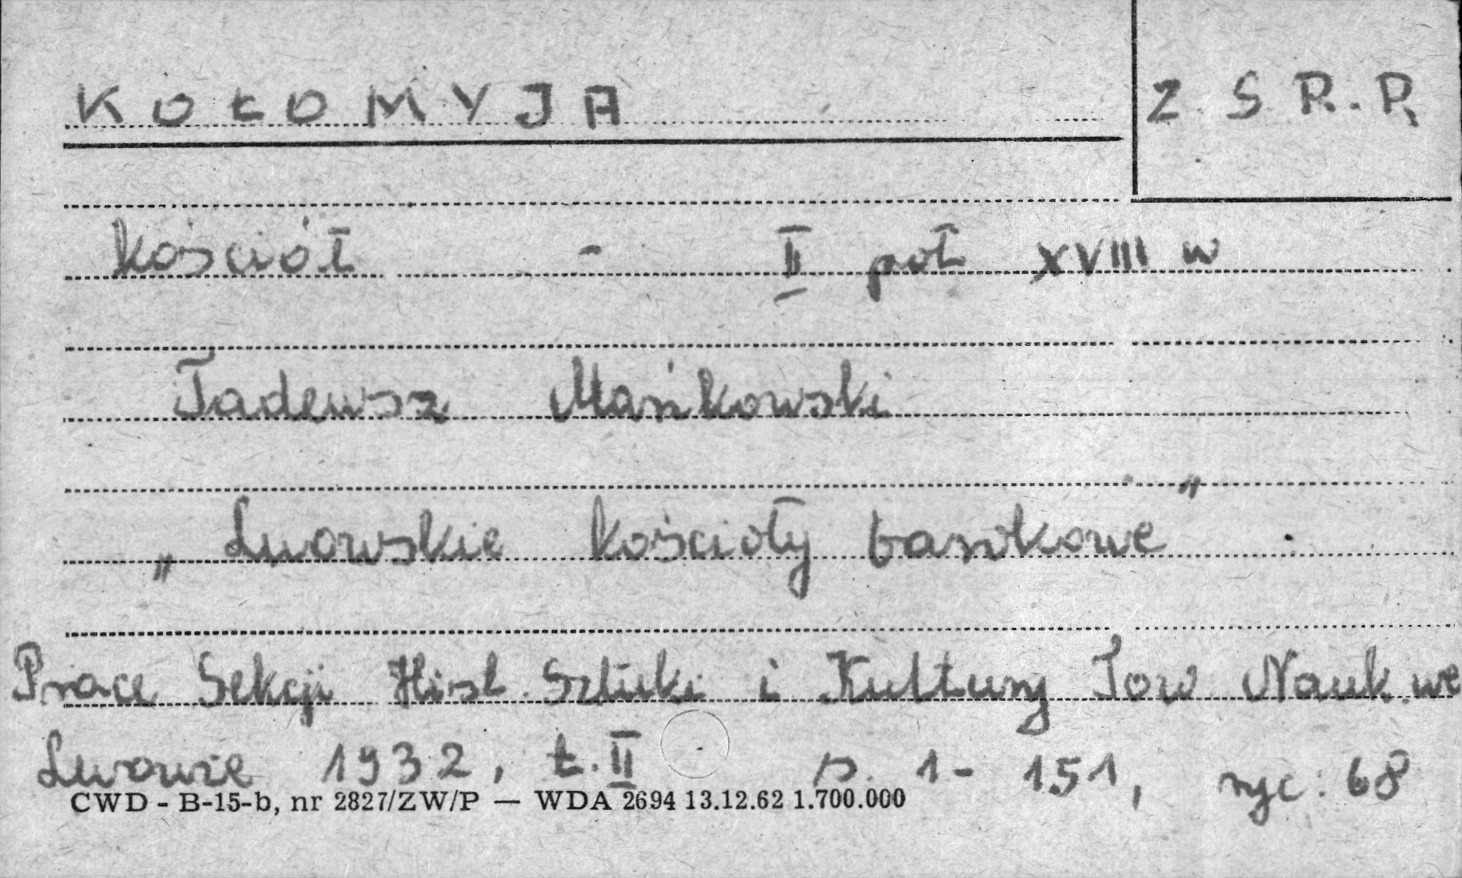 KOŁOMYJA
Z S R. R.
Kościół - II poł XVIII w
Tadeusz Mańkowski
„Lwowskie kościoły barokowe”
Prace Sekcji Hist. Sztuki i Kultury Tow Nauk. we
Lwowie 1932, t. II s. 1-151, ryc: 68
CWD - B-15-b, nr 2827/ZW/P — WDA 2694 13.12.62 1.700.000